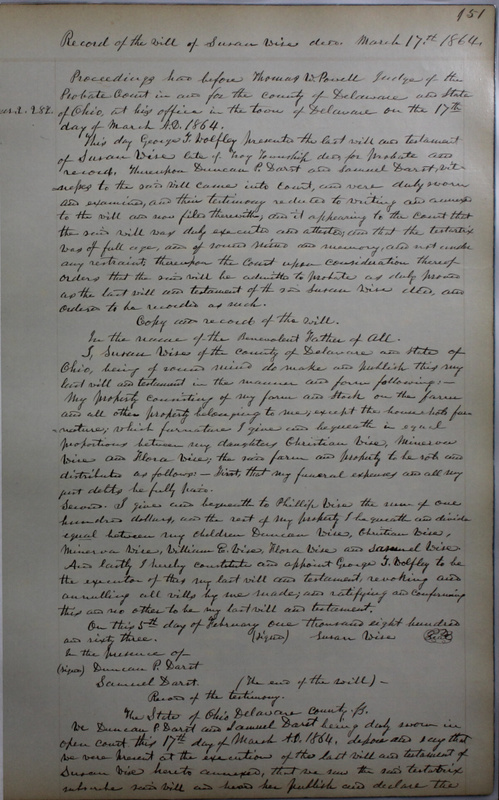 151
Record of the will of Susan Wise decd. March 17th 1864.
Proceedings had before Thomas W. Powell Judge of the
Probate Court in and for the county of Delaware and State
of Ohio, at his office in the town of Delaware on the 17th
day of March A.D. 1864.
This day George F. Wolfley presented the last will and testament
of Susan Wise late of Troy Township decd for Probate and
record. Thereupon Duncan P. Darst and Samuel Darst, wit-
nesses to the said will came into Court, and were duly sworn
and examined, and their testimony reduced to writing and annexed
to the will and now filed therewith, and it appearing to the Court that
the said will was duly executed and attested, and that the testatrix
was of full age, and of sound mind and memory, and not under
any restraint, thereupon the Court upon consideration thereof
orders that the said will be admitted to probate as duly proved
as the last will and testament of the said Susan Wise decd, and
ordered to be recorded as such.
Copy and record of the will.
In the name of the Benevolent Father of All.
I, Susan Wise of the County of Delaware and State of
Ohio, being of sound mind do make and publish this my
last will and testament in the manner and form following:—
My property consisting of my farm and stock on the farm
and all other property belonging to me, except the household fur-
niture; which furnature I give and bequeath in equal
proportions between my daughters Christian Wise, Minerva
Wise and Flora Wise, the said farm and property to be sold and
distributed as follows:— First, that my funeral expenses and all my
just debts be fully paid.
Second. I give and bequeath to Phillip Wise the sum of one
hundred dollars, and the rest of my property I bequeath and divide
equal between my children Duncan Wise, Christian Wise,
Minerva Wise, William E. Wise, Flora Wise and Samuel Wise
And lastly I hereby constitute and appoint George F. Wolfley to be
the executor of this my last will and testament, revoking and
annulling all wills by me made; and ratifying and confirming
this and no other to be my last will and testament.
On this 5th day of February one thousand eight hundred
and sixty three. (Signed) Susan Wise
In the presence of
(signed) Duncan P. Darst
Samuel Darst. (The end of the will)—
Record of the testimony.
The State of Ohio Delaware County ss.
We Duncan P. Darst and Samuel Darst being duly sworn in
open court this 17th day of March A.D. 1864, depose and say that
we were present at the execution of the last will and testament of
Susan Wise hereto annexed, that we saw the said testatrix
subscribe said will and heard her publish and declare the